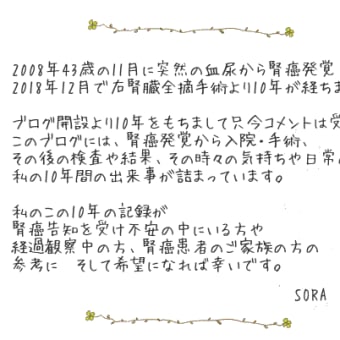 2008年43歳の11月に突然の血尿から腎癌発覚
2018年12月で右腎臓全摘手術より10年が経ちま
ブログ開設より10年をもちまして只今コメントは受
このブログには、腎癌発覚から入院・手術、
その後の検査や結果、その時々の気持ちや日常
私の10年間の出来事が詰まっています。
私のこの10年の記録が
腎癌告知を受け不安の中にいる方や
経過観察中の方、腎癌患者のご家族の方の
参考に　そして希望になれば幸いです。
SORA